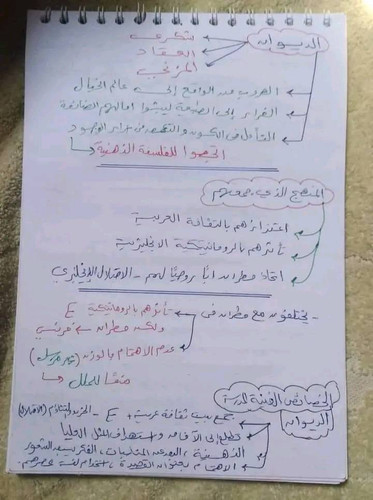 الديوان
شكرى
العقاد
المازنى
الهروب من الواقع إلى عالم الخيال
الفرار إلى الطبيعة ليبثوا آمالهم الضائعة
التأمل فى الكون والتعمق فى أسرار الوجود
اتجهوا للفلسفة الذهنية
المنهج الذي جمعهم
اعتزازهم بالثقافة العربية
تأثرهم بالرومانتيكية الإنجليزية
اتخاذ مطران أبًا روحيًا لهم - الاحتلال الإنجليزي
- يختلفون مع مطران فى
تأثرهم بالرومانتيكية E
ولكن مطران فرنسي
عدم الاهتمام بالوزن (شعر مرسل)
منعًا للملل
الخصائص الفنية لمدرسة
الديوان
الجمع بين ثقافة عربية + E -
التطلع إلى الآفاق واستهداف المثل العليا
الذهنية، البعد عن المناسبات، الفكر يسبق الشعور
الاهتمام بعنوان القصيدة، استخدام لغة عصرهم